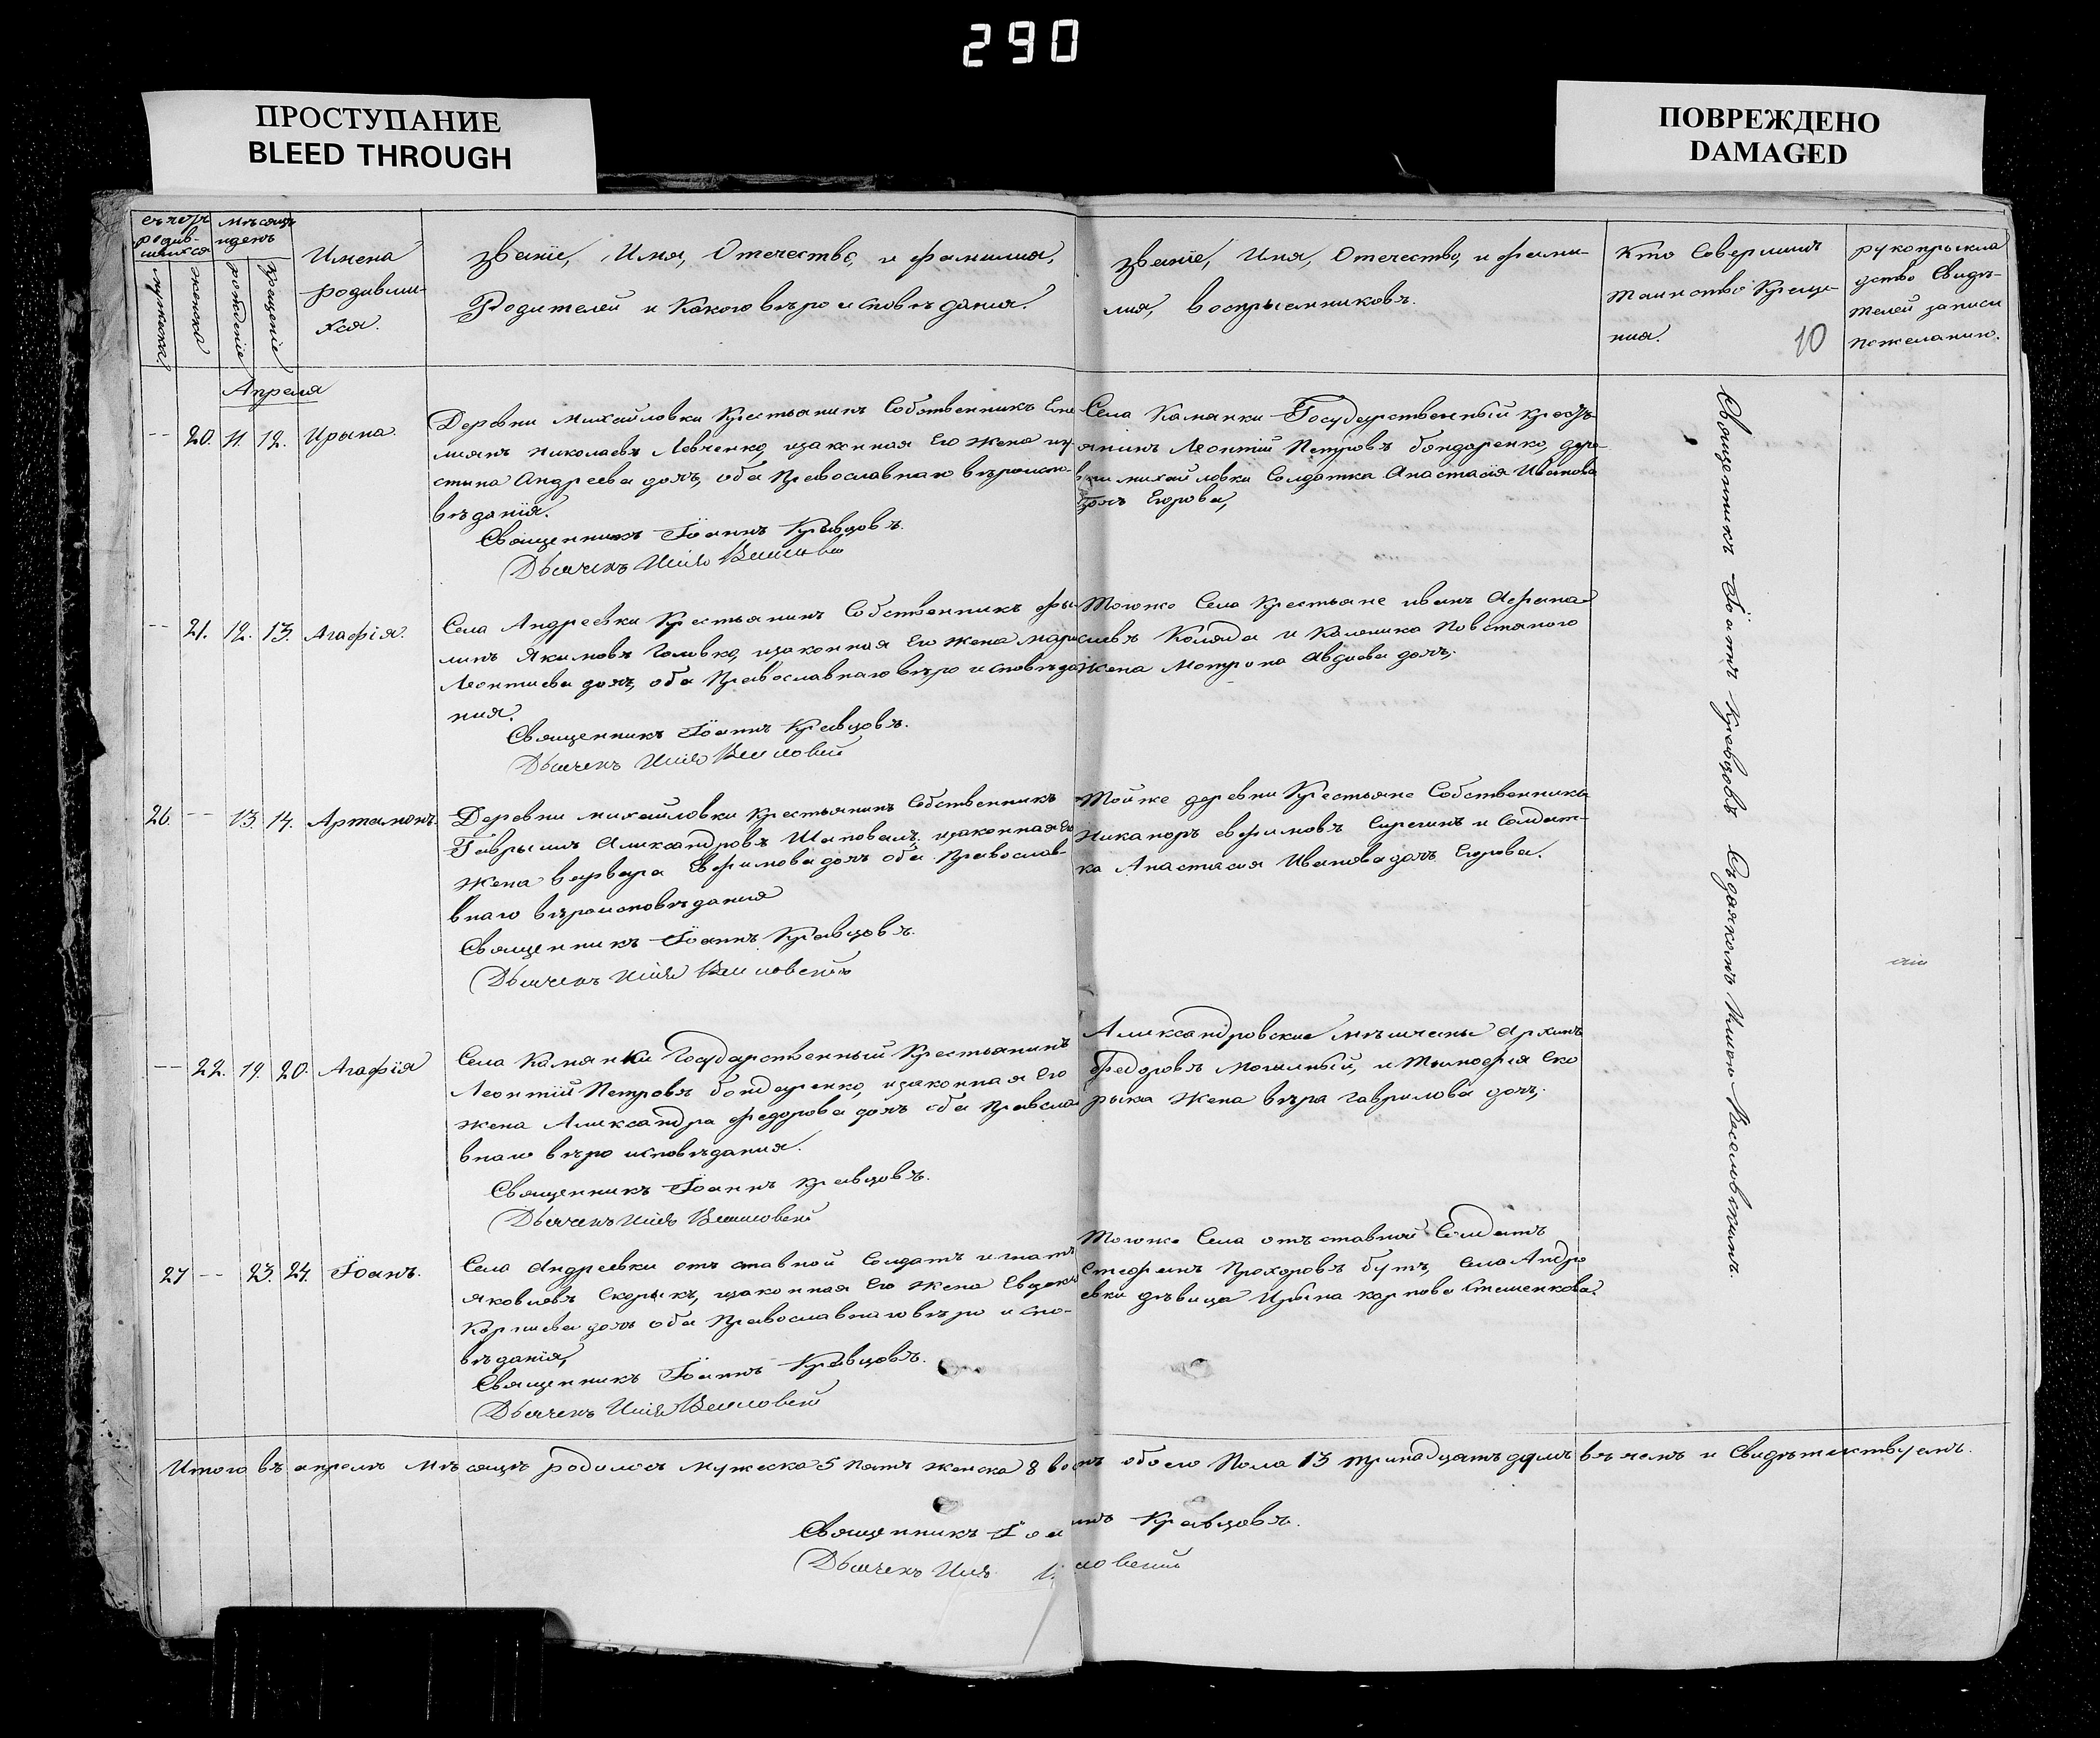 290
ПРОСТУПАНИЕ
BLEED THROUGH
ПОВРЕЖДЕНО
DAMAGED
родив-
шихся
мужеска
женска
рождение
крещение
Имена
родивши-
хся.
Звание, Имя, Отечество, и фамилия,
Родителей и Какого вероисповедания.
Звание, Имя, Отечество, и фами-
лия, восприемниковъ.
Кто Совершилъ
таинство Креще-
ния.
10
рукоприкла
дство Свидѣ-
телей записи
по желанию.
Апреля
-- 20. 11. 12. Ирына.
Деревни Михайловки Крестьянинъ Собственникъ
Николаевъ Левченко, и законная Его жена
стина Андреева дочь, оба Православнаго вѣроиспо-
вѣдания.
Священникъ Іоаннъ Кравцовъ.
Села Камянки Государственный крестъ
янинъ Леонтій Петровъ бондаренко, дере-
вни михайловки Солдатка Анастасія Иванова
дочь Егорова,
-- 21. 12. 13. Агафія.
Села Андреевки Крестьянинъ Собственникъ фи
липъ Якимовъ Головко, и законная Его жена мари
Леонтиева дочь, оба Православнаго вѣро исповѣда
ния.
Священникъ Іоаннъ Кравцовъ.
Тогоже Села Крестьяне иванъ Афана
сиевъ Коляда и Калиника Повстяного
жена Мотрона Авдиева дочь,
26. -- 13. 14. Артамонъ.
Деревни михайловки крестьянинъ Собственникъ
Гаврыилъ Александровъ Шаповалъ, и законная Его
жена варвара Евфимова дочь оба Православ-
внаго вѣроисповѣдания
Священникъ Іоаннъ Кравцовъ.
Тойже деревни Крестьяне Собственники
Никаноръ евфимовъ и Солдат-
ка Анастасия Иванова дочь Егорова.
-- 22. 19. 20. Агафія
Села Камянки Государственный Крестьянинъ
Леонтій Петровъ бондаренко, и законная Его
жена Александра федорова дочь оба Правосла
внаго вѣро исповѣдания.
Священникъ Іоаннъ Кравцовъ.
Александровские мѣщаны Архипъ
федоровъ и Тимофея Ско
рыка жена вѣра гаврилова дочь,
27 -- 23. 24. Іоанъ.
Села Андреевки отъ ставной Солдатъ игнатъ
яковлевъ Скорыкъ, и законная Его жена Евдоки
дочь оба Православнаго вѣро испо-
вѣдания,
Священникъ Іоаннъ Кравцовъ.
Тогоже Села отъ ставной Солдатъ
Стефанъ Прохоровъ бутъ, Села Андре
евки дѣвица Ирына карпова
Священникъ Іоаннъ Кравцовъ Съ дячкомъ
Итого въ апрелѣ мѣсяцѣ родилось мужеска 5 пять женска 8 восмъ обоего Пола 13 тринадцать душъ въ чемъ и Свидѣтельствуемъ.
Священникъ Іоаннъ Кравцовъ.